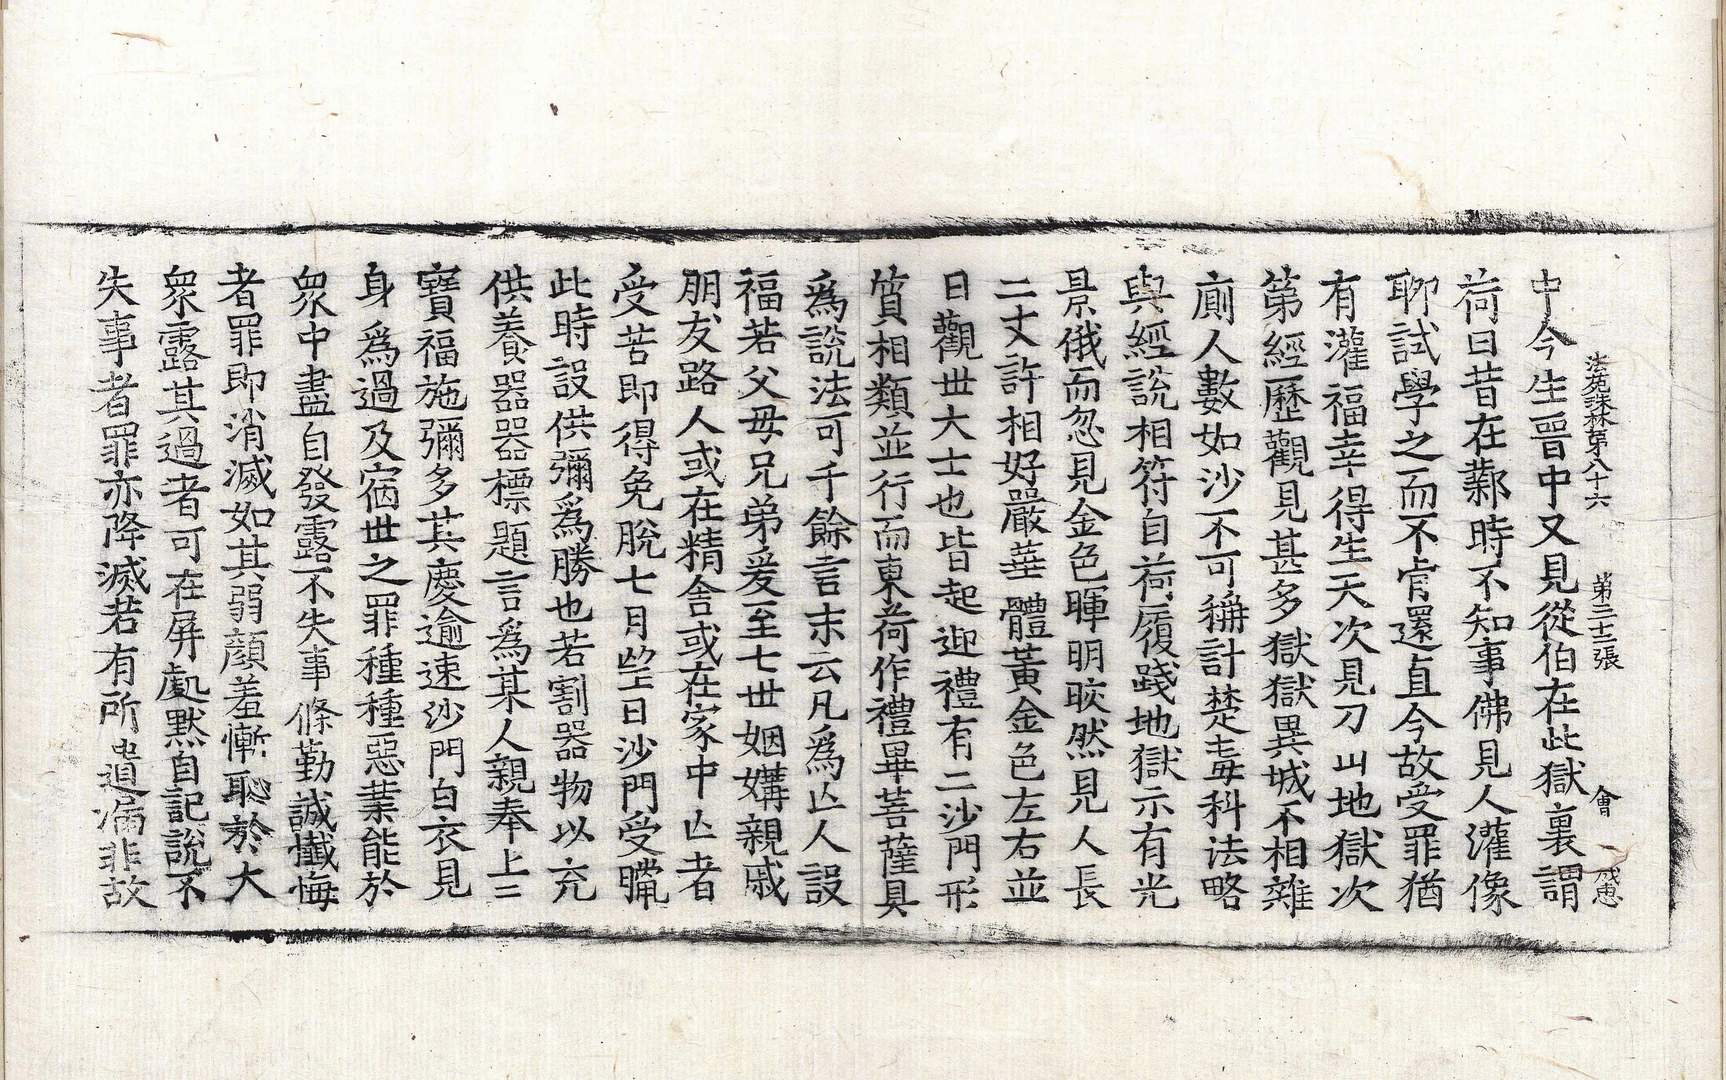 法苑珠林第八十六 第二十三張 會 成恵
中今生晉中又見從伯在此獄裏謂
荷曰昔在鄴時不知事佛見人灌像
聊試學之而不肯還直今故受罪猶
有灌福幸得生天次見刀山地獄次
第經歷觀見甚多獄獄異城不相雜
廁人數如沙不可稱計楚毒科法略
與經說相符自荷履踐地獄示有光
景俄而忽見金色暉明皎然見人長
二丈許相好嚴華體黃金色左右並
曰觀世大士也皆起迎禮有二沙門形
質相類並行而東荷作禮畢菩薩具
為說法可千餘言末云凡為亾人設
福若父母兄弟爰至七世姻媾親戚
朋友路人或在精舍或在家中亾者
受苦即得免脫七月望日沙門受臘
此時設供彌為勝也若割器物以充
供養器器標題言為某人親奉上三
寶福施彌多其慶逾速沙門白衣見
身為過及宿世之罪種種惡業能於
眾中盡自發露不失事條勤誠懺悔
者罪即消滅如其弱顏羞慚恥於大
眾露其過者可在屏處默自記說不
失事者罪亦降滅若有所遺漏非故